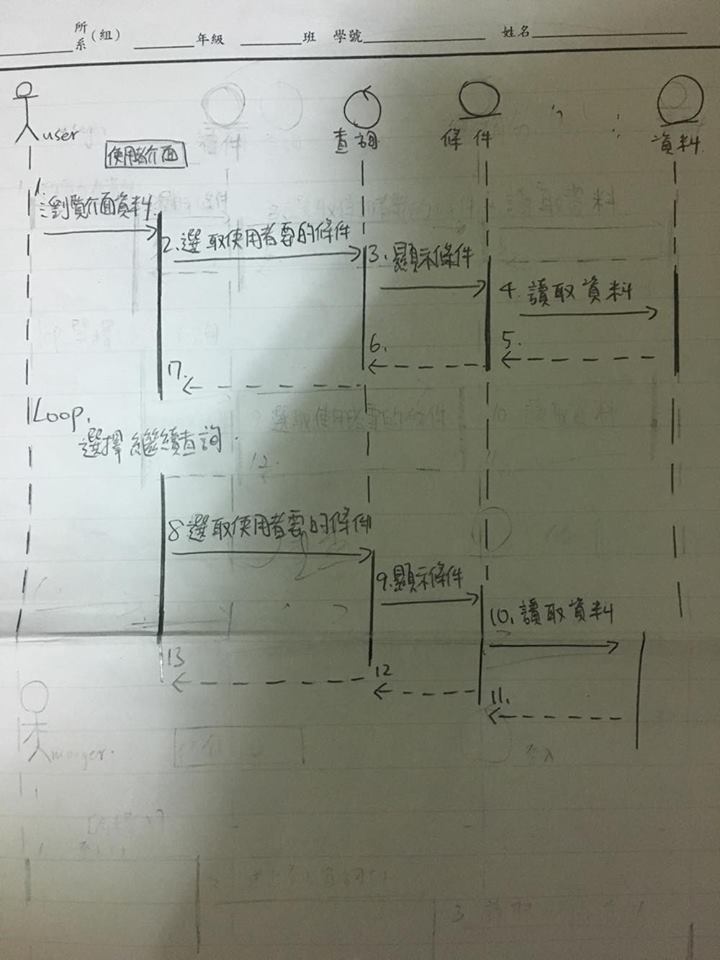 所
系(組) 年級 班 學號 姓名
user
使用者介面
查詢
條件
資料
1.
瀏覽介面資料
2. 選取使用者要的條件
3. 顯示條件
4. 讀取資料
5.
6.
7.
Loop.
選擇繼續查詢.
8 選取使用者要的條件
9. 顯示條件
10. 讀取資料
11.
12
13